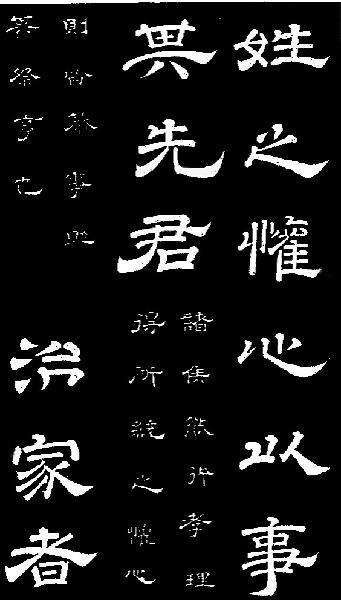 姓之懽心以事
其先君
諸侯能行孝理
得所統之懽心
則皆恭事助
其祭享也
治家者